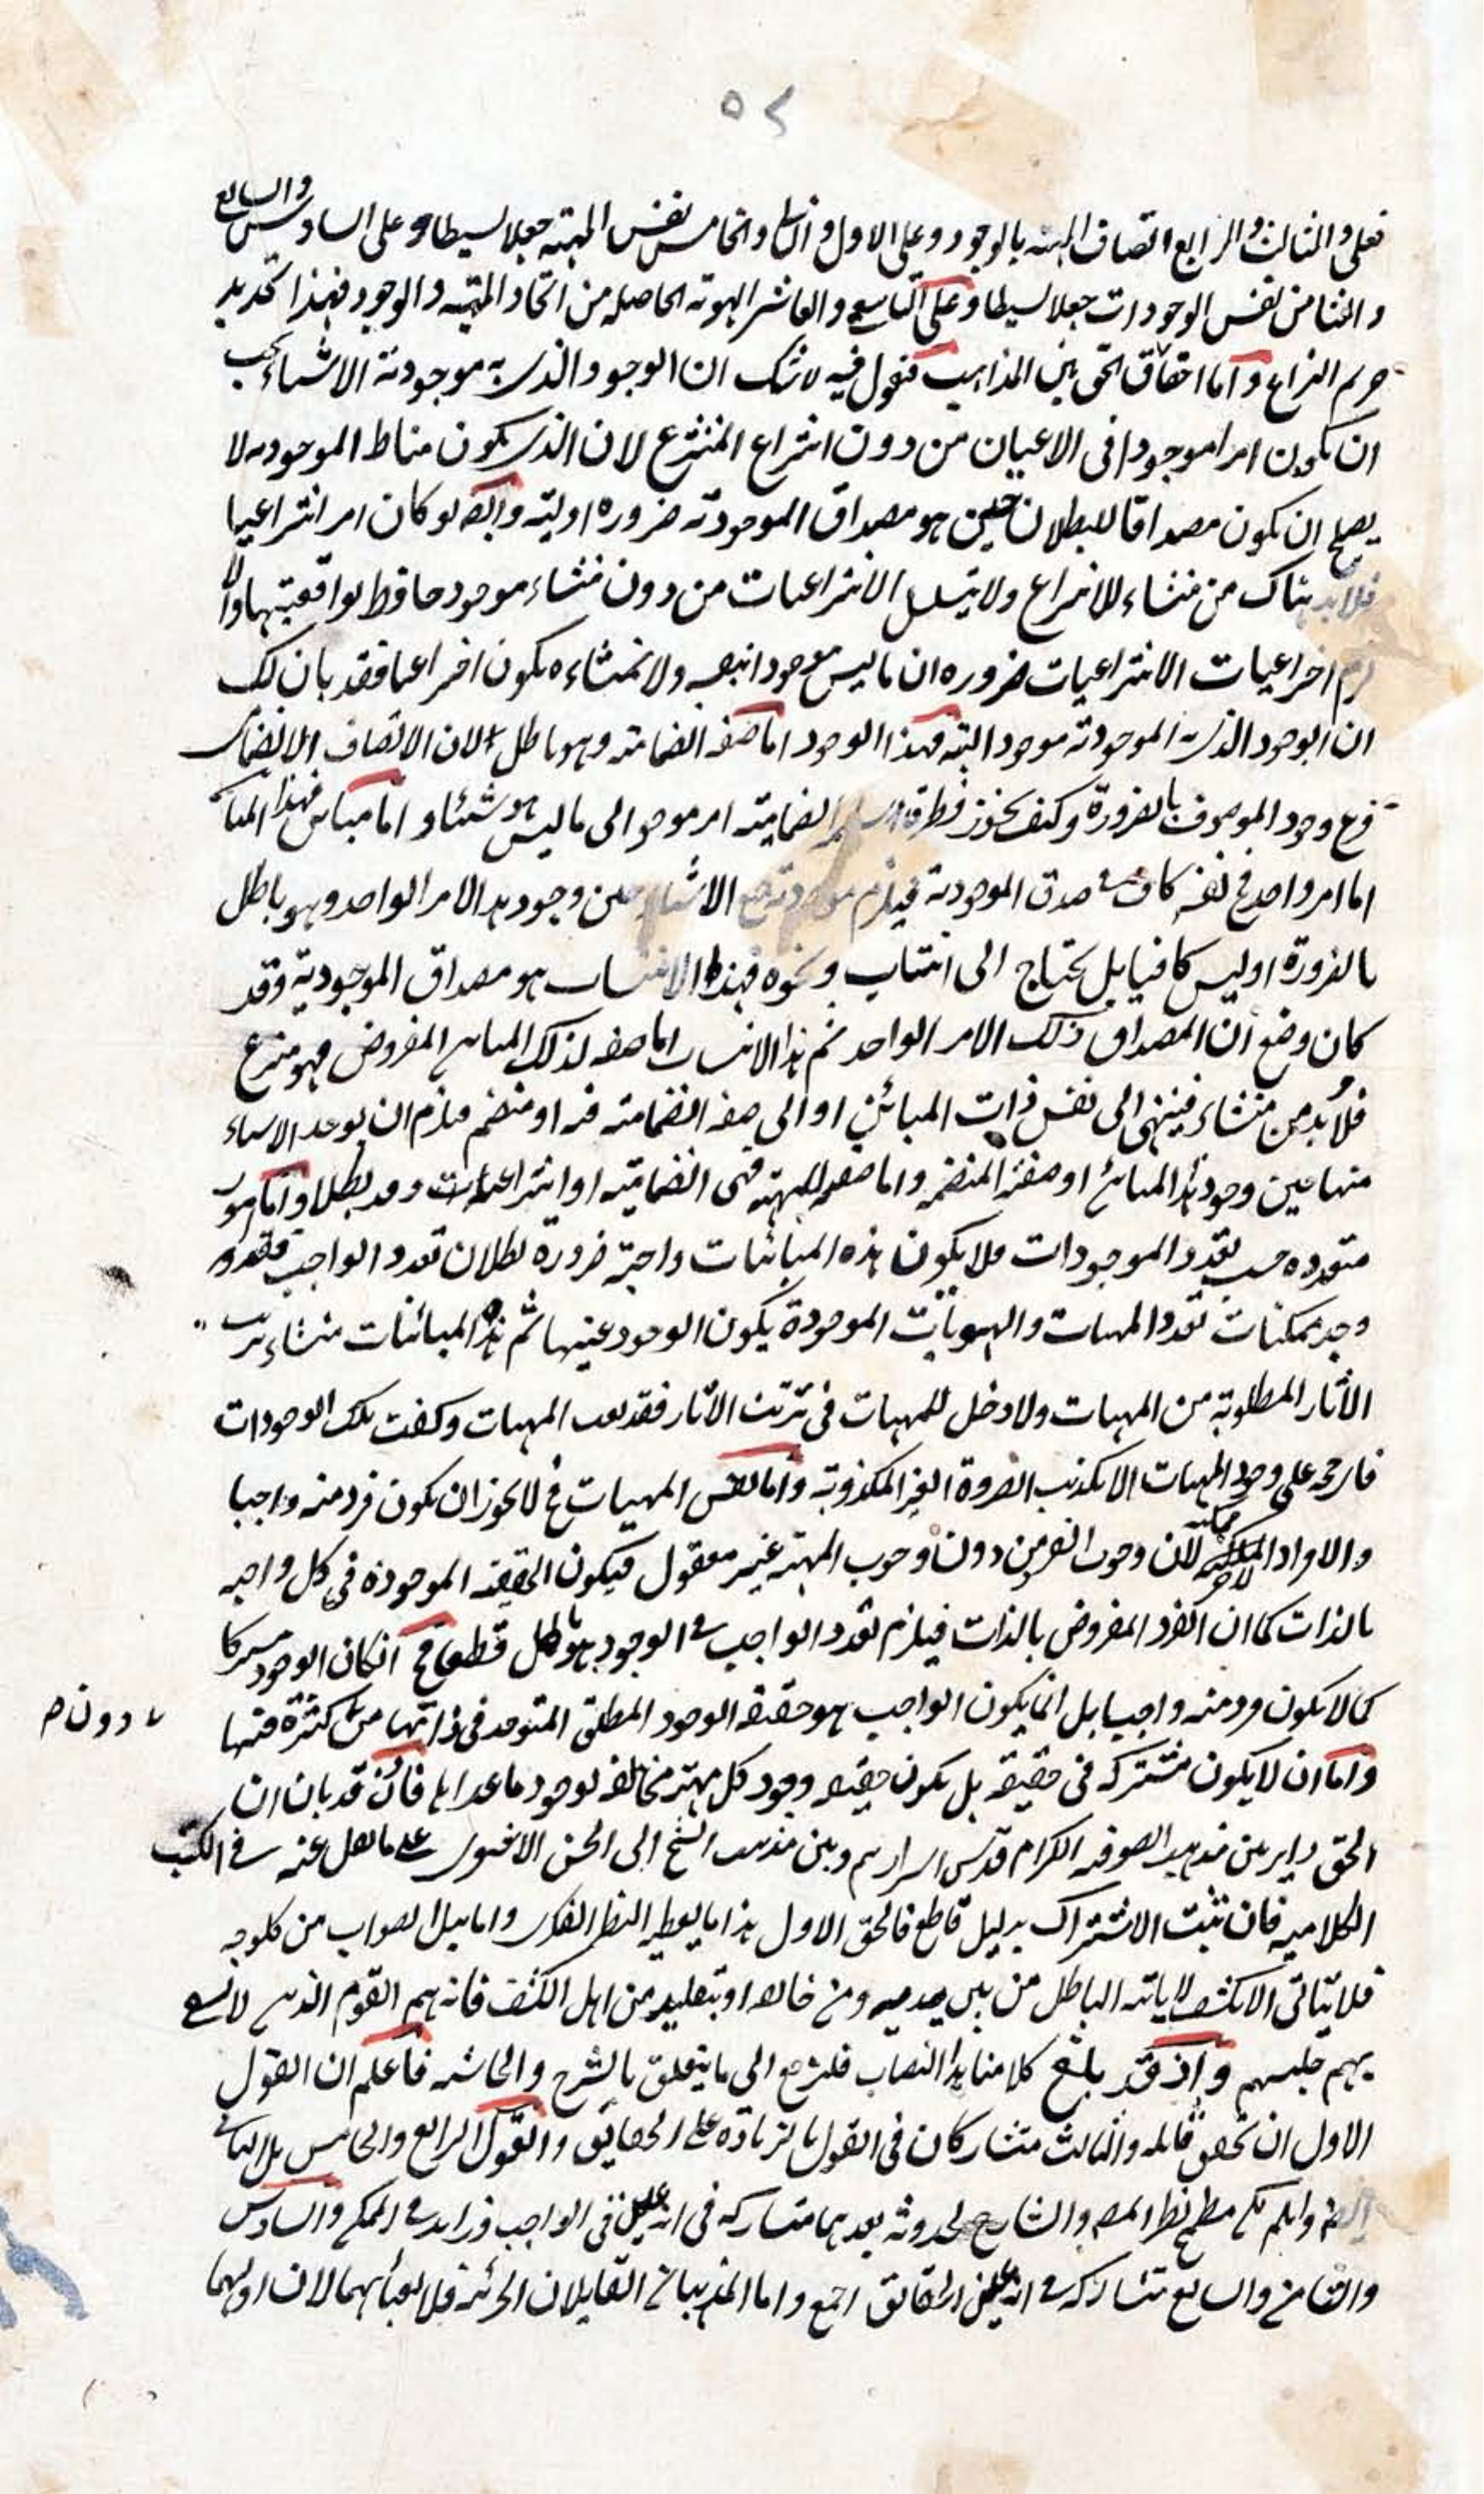 ٥٢
فعلى الثالث والرابع اتصاف المهية بالوجود وعلى الاول والثانى والخامس نفس المهية جعلا بسيطا وعلى السادس والسابع
والثامن نفس الوجودات جعلا بسيطا وعلى التاسع والعاشر الهوية الحاصلة من اتحاد المهية والوجود فهذا تحديد
حريم النزاع واما احقاق الحق بين المذاهب فنقول فيه لا شك ان الوجود الذى به موجودية الاشياء يجب
ان يكون امرا موجودا فى الاعيان من دون انتزاع المنتزع لان الذى يكون مناط الموجودية لا
يصلح ان يكون مصداقا للبطلان حين هو مصداق الموجودية ضرورة اولية وايضا لو كان امر انتزاعيا
فلا بد هناك من منشاء للانتزاع ولا يتسلسل الانتزاعيات من دون منشاء موجود حافظ لواقعيتها والا
لزم اختراعيات الانتزاعيات ضرورة ان ما ليس موجودا بنفسه ولا بمنشاءه يكون اختراعيا فقد بان لك
ان الوجود الذى به الموجودية موجود البتة فهذا الوجود اما صفة انضمامية وهو باطل لان الاتصاف الانضمامى
فرع وجود الموصوف بالضرورة وكيف يجوز انضمامية امر موجود الى ما ليس هو شيئا واما مباين فهذا المباين
اما امر واحد فى نفسه كاف فى صدق الموجودية فيلزم موجودية جميع الاشياء حين وجود هذا الامر الواحد وهو باطل
بالضرورة او ليس كافيا بل يحتاج الى انتساب ونحوه فهذا الانتساب هو مصداق الموجودية وقد
كان وضع ان المصداق ذلك الامر الواحد ثم هذا الانتساب اما صفة لذلك المباين المفروض فهو منتزع
فلا بد من منشاء فينتهى الى نفس ذات المبائن او الى صفة انضمامية فيه او منضم فيلزم ان يوجد الاشياء
منها حين وجود هذا المبائن او صفته المنضمة واما صفة للمهية فهى انضمامية او انتزاعيات وقد بطلا واما امور
متعددة حسب تعدد الموجودات فلا يكون هذه المبائنات واجبة ضرورة بطلان تعدد الواجب فقد
وجد ممكنات تعدد المهيات والهويات الموجودة يكون الوجود عينها ثم هذه المبائنات منشاء ترتب
الآثار المطلوبة من المهيات ولا دخل للمهيات فى ترتب الآثار فقد المهيات وكفت تلك الوجودات
على وجود المهيات الا تكذيب الضرورة الغير المكذوبة واما نفس المهيات فح لا يجوز ان يكون فرد منه واجبا
والافراد ممكنة لان وجوب الفرد من دون وجوب المهية غير معقول فيكون الحقيقة الموجودة فى كل واجبة
بالذات كما ان الفرد المفروض بالذات فيلزم تعدد الواجب فى الوجود هو باطل قطعا فح ان كان الوجود مشتركا
كما لا يكون فرد منه واجبا بل انما يكون الواجب هو حقيقة الوجود المطلق المتوحد فى ذاتها من كثرة فيها
دون صح
واما ان لا يكون مشتركة فى حقيقة بل يكون حقيقة وجود كل مهية مخالفة لوجود ما عداها فاذن قد بان ان
الحق داير بين مذهب الصوفية الكرام قدس اسرارهم وبين مذهب الشيخ ابى الحسن الاشعرى على ما نقل عنه فى الكتب
الكلامية فان ثبت الاشتراك بدليل قاطع فالحق الاول هذا ما يعطيه النظر الفكرى واما نيل الصواب من كل وجه
فلا يتأتى الا بكشف لا ياتيه الباطل من بين يديه ومن خلفه او بتقليد من اهل الكشف فانهم هم القوم الذى لا يشقى
بهم جليسهم واذ قد بلغ كلامنا هذا النصاب فلنرجع الى ما يتعلق بالشرح والحاشية فاعلم ان القول
الاول ان تحقق قائله والثالث متشاركان فى القول بالزيادة على الحقايق والقول الرابع والخامس بل الثانى
ايضا وان لم يكن مطمح نظر المص والشارح لحدوثه بعدهما متشاركة فى انه عين فى الواجب وزايد فى الممكن والسادس
والثامن والسابع متشاركة فى انه عين الحقائق اجمع واما المذهبان القايلان الجزئية فلا يعبأ بهما لان اولهما